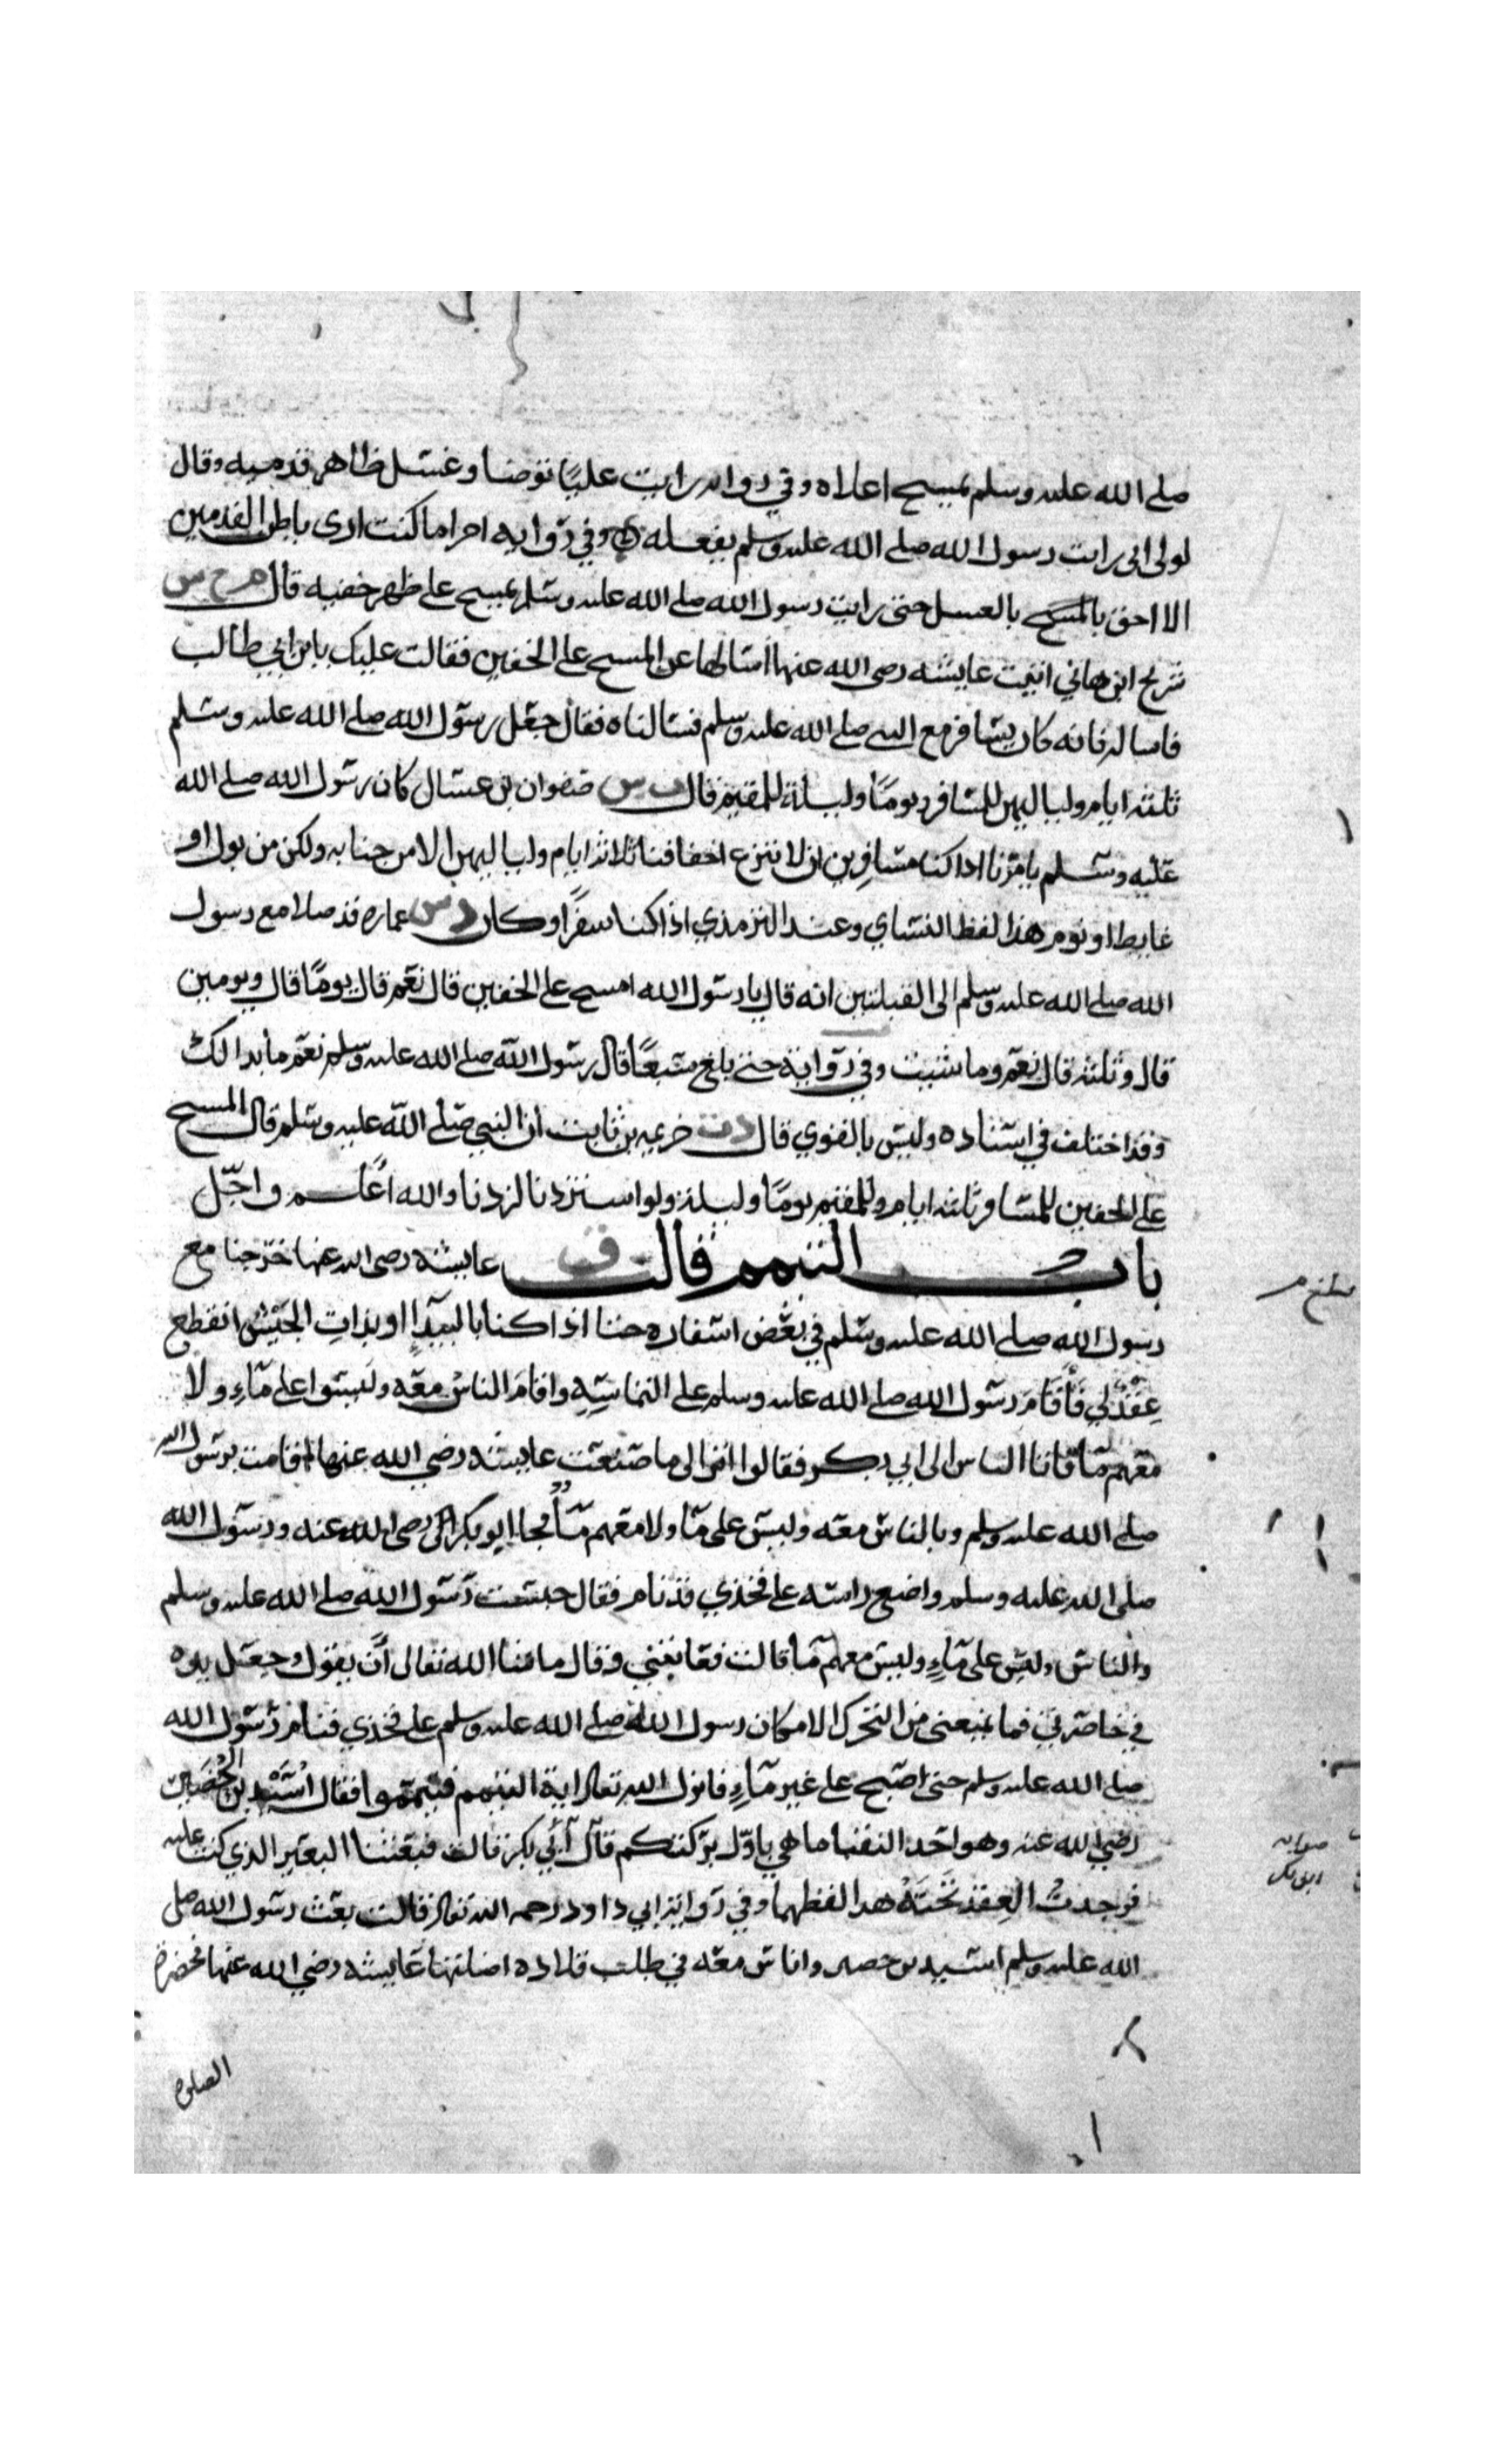 صلى الله عليه وسلم يمسح اعلاه وفي رواية رايت عليًا توضا وغسل ظاهر قدميه وقال
لولا اني رايت رسول الله صلى الله عليه وسلم يفعله وفي رواية اخرا ما كنت ارى باطن القدمين
الا احق بالمسح بالغسل حتى رايت رسول الله صلى الله عليه وسلم يمسح على ظهر خفيه قال م ح س
شريح ابن هاني اتيت عايشه رضى الله عنها اسالها عن المسح على الخفين فقالت عليك بابن ابي طالب
فاساله فانه كان يسافر مع النبي صلى الله عليه وسلم فسالناه فقال جعل رسول الله صلى الله عليه وسلم
ثلثه ايام ولياليهن للمسافر ويومًا وليلة للمقيم قال ت س صفوان بن عسال كان رسول الله صلى الله
عليه وسلم يامرنا اذا كنا مسافرين ان لا ننزع اخفافنا ثلاثة ايام ولياليهن الا من جنابه ولكن من بول او
غايط او نوم هذا لفظ النساي وعند الترمذي اذا كنا سفرًا وكان د س عماره قد صلا مع رسول
الله صلى الله عليه وسلم الى القبلتين انه قال يا رسول الله امسح على الخفين قال نعم قال يومًا قال ويومين
قال وثلثه قال نعم وما شيت وفي رواية حتى بلغ سبعًا قال رسول الله صلى الله عليه وسلم نعم ما بدا لك
وقد اختلف في اسناده وليس بالقوي قال د ت خزيمه بن ثابت ان النبي صلى الله عليه وسلم قال المسح
على الخفين للمسافر ثلثه ايام وللمقيم يومًا وليلة ولو استزدنا لزدنا والله اعلم واجل
باب التيمم قالت ق عايشه رضى الله عنها خرجنا مع
رسول الله صلى الله عليه وسلم في بعض اسفاره حتا اذا كنا بالبيدآ او بذات الجيش انقطع
عقد لي فاقام رسول الله صلى الله عليه وسلم على التماسه واقام الناس معه وليسوا على ماء ولا
معهم مآ فاتا الناس الى ابي بكر فقالوا الا ترى الى ما صنعت عايشه رضي الله عنها اقامت برسول الله
صلى الله عليه وسلم وبالناس معه وليس على مآ ولا معهم مآ فجا ابو بكر رضى الله عنه ورسول الله
صلى الله عليه وسلم واضع راسه على فخذي قد نام فقال حبست رسول الله صلى الله عليه وسلم
والناس وليس على مآءٍ وليس معهم مآ قالت فعاتبني وقال ما شا الله تعالى أن يقول وجعل بيده
في خاصرتي فما يمنعني من التحرك الا مكان رسول الله صلى الله عليه وسلم على فخذي فنام رسول الله
صلى الله عليه وسلم حتى اصبح على غير مآءٍ فانزل الله تعالى اية التيمم فتيمموا فقال اسيد بن الحضير
رضي الله عنه وهو احد النقبا ما هي باول بركتكم قال آبي بكر قالت فبعثنا البعير الذي كنت عليه
فوجدت العقد تحته هذا لفظهما وفي رواية ابي داود رحمه الله تعالى قالت بعث رسول الله صلى
الله عليه وسلم اسيد بن حضير واناس معه في طلب قلاده اضلتها عايشه رضي الله عنها فحضرة
الصلوه